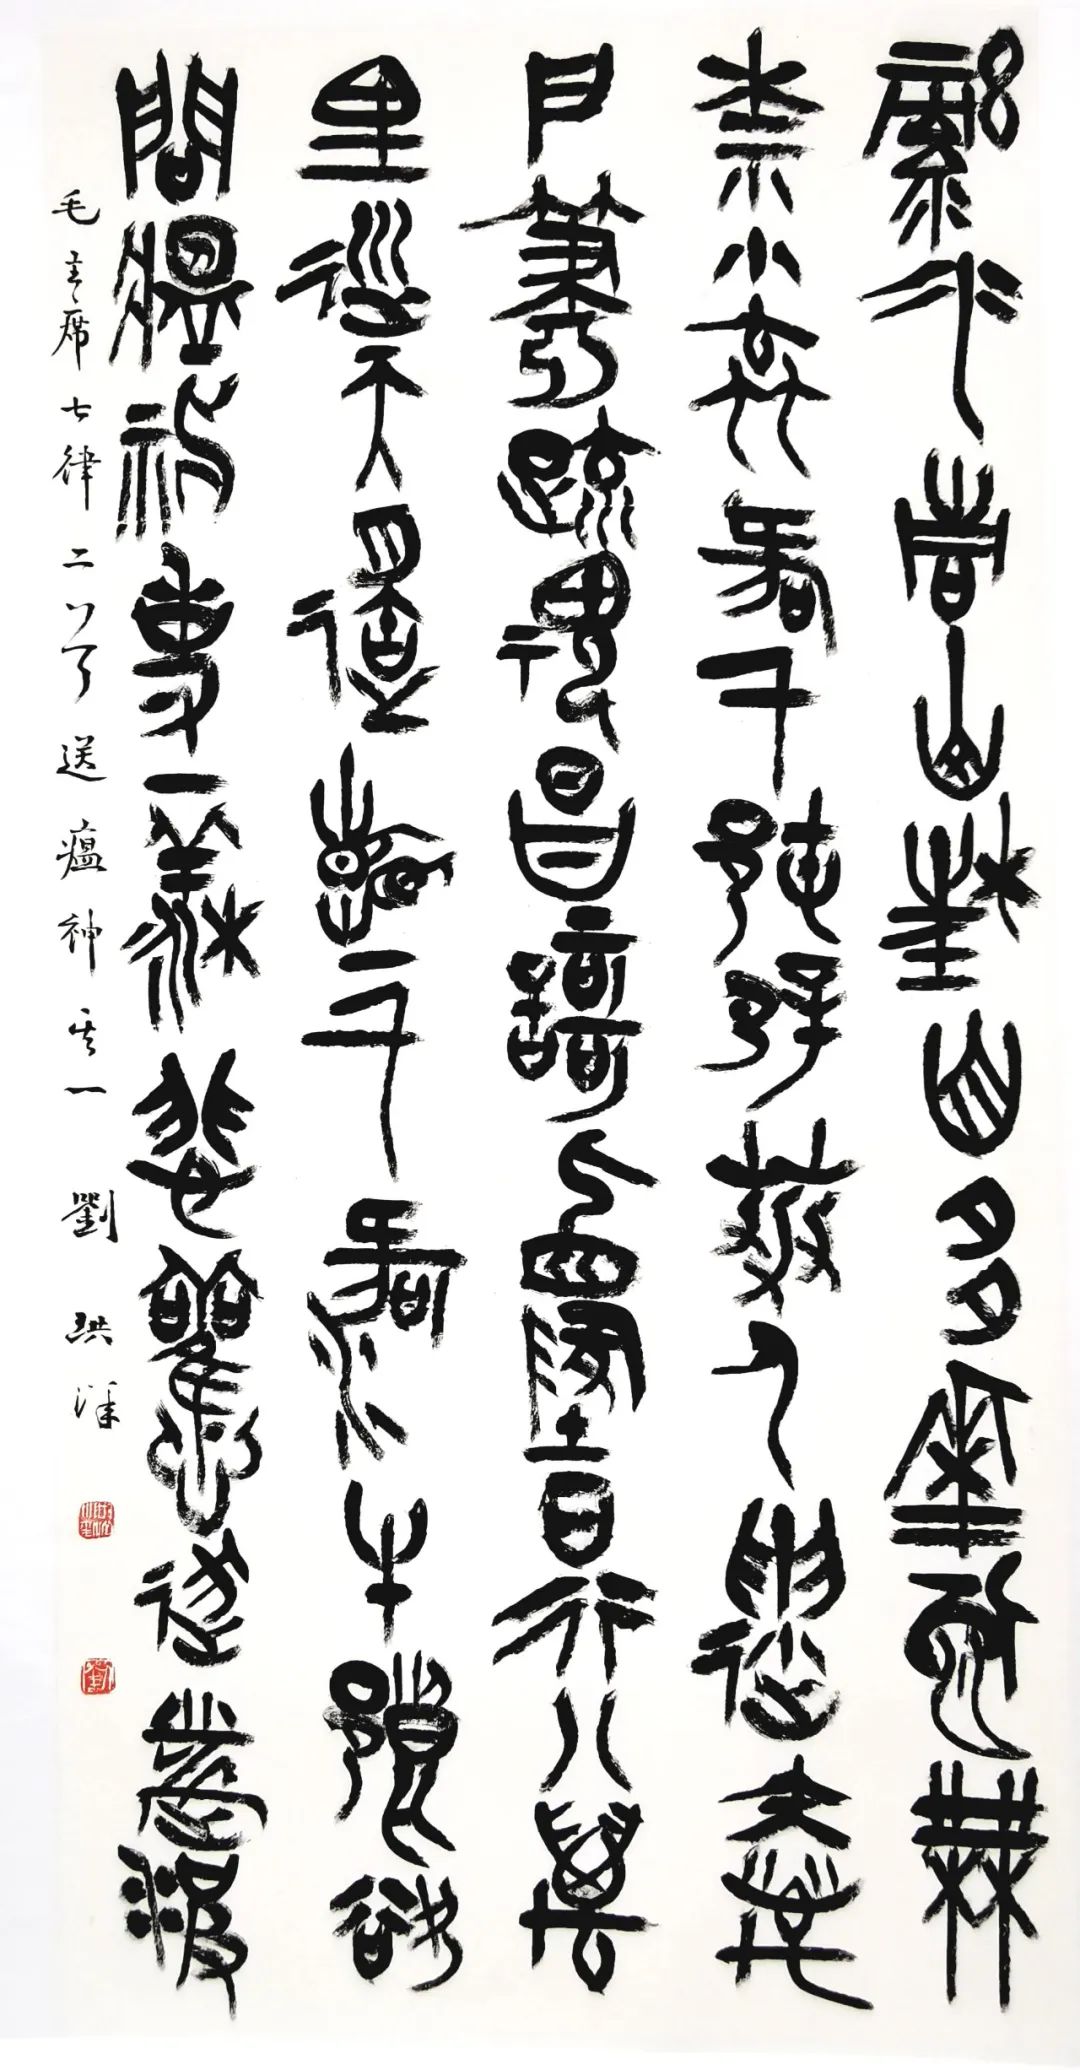 綠水青山枉自多華佗無
奈小蟲何千村薜荔人遺矢萬
戶蕭疏鬼唱歌坐地日行八萬
里巡天遙看一千河牛郎欲
問瘟神事一樣悲歡逐逝波
毛主席七律二首送瘟神其一 劉洪洋